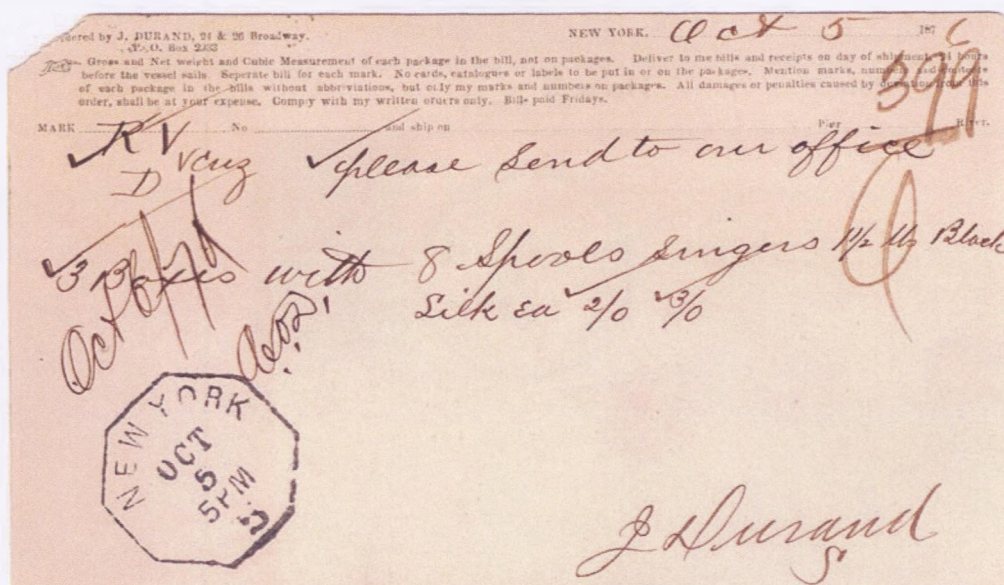 Ordered by J. DURAND, 24 & 26 Broadway.
P. O. Box 2033
NEW YORK, Oct 5 1876
Gross and Net weight and Cubic Measurement of each package in the bill, not on packages. Deliver to me bills and receipts on day of shipment, 24 hours
before the vessel sails. Seperate bill for each mark. No cards, catalogues or labels to be put in or on the packages. Mention marks, numbers and contents
of each package in the bills without abbreviations, but only my marks and numbers on packages. All damages or penalties caused by deviation from this
order, shall be at your expense. Comply with my written orders only. Bills paid Fridays.
399
MARK No and ship on Pier River.
R V
D Vcruz
please send to our office
3 Boxes with 8 Spools Singers 1½ lb Black
Silk ea 2/0 3/0
Oct 6/76
NEW YORK
OCT
5
5 PM
J Durand
S